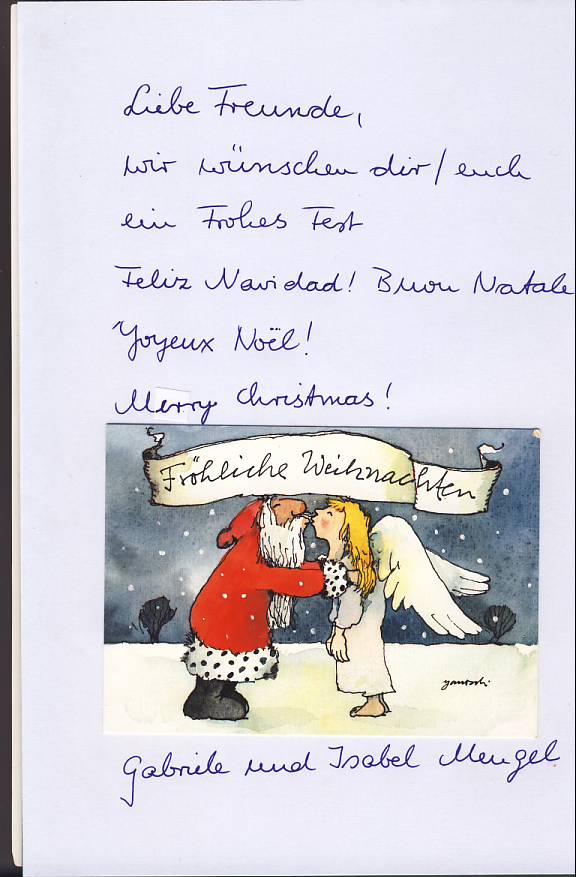 Liebe Freunde,
wir wünschen dir/euch
ein Frohes Fest
Feliz Navidad! Buon Natale
Yoyeux Noël!
Merry Christmas!
Fröhliche Weihnachten
Gabriele und Isabel Mengel